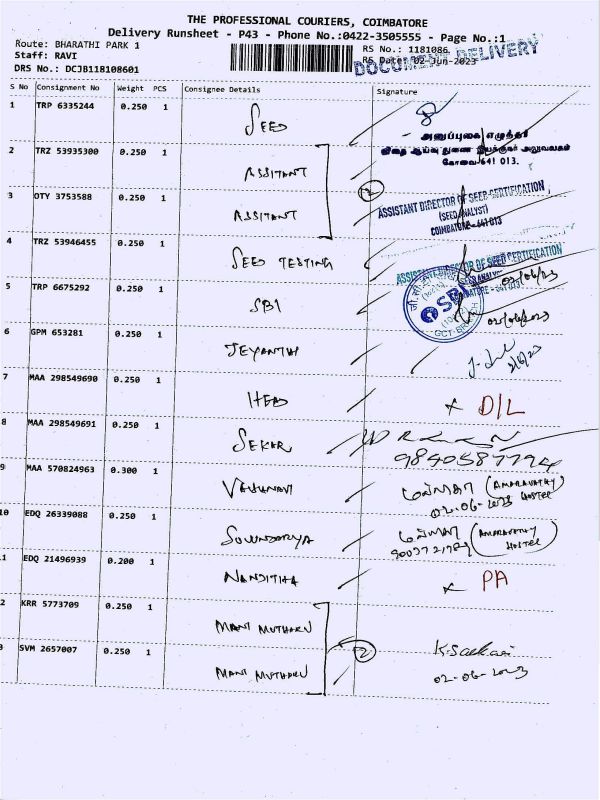 THE PROFESSIONAL COURIERS, COIMBATORE
Delivery Runsheet - P43 - Phone No.:0422-3505555 - Page No.:1
Route: BHARATHI PARK 1
RS No.: 1181086
Staff: RAVI
RS Date: 02-Jun-2023
DOCUMENT DELIVERY
DRS No.: DCJB118108601
S No Consignment No Weight PCS Consignee Details Signature
1 TRP 6335244 0.250 1 SEED
அனுப்புகை எழுத்தர்
விதை ஆய்வு துணை இயக்குநர் அலுவலகம்
கோவை 641 013.
2 TRZ 53935300 0.250 1 ASSITANT
3 OTY 3753588 0.250 1 ASSITANT
2
ASSISTANT DIRECTOR OF SEED CERTIFICATION
(SEED ANALYST)
COIMBATORE - 641 013
4 TRZ 53946455 0.250 1 SEED TESTING
ASSISTANT DIRECTOR OF SEED CERTIFICATION
02/06/23
5 TRP 6675292 0.250 1 SBI
SBI
GCT-BRANCH
02/06/2023
6 GPM 653281 0.250 1 JEYANTHI
2/6/23
7 MAA 298549690 0.250 1 HEAD x D/L
8 MAA 298549691 0.250 1 SEKAR
9840587794
9 MAA 570824963 0.300 1 VAISHNAVI
(AMARAVATHY HOSTEL)
02-06-2023
10 EDQ 26339088 0.250 1 SOUNDARYA
(AMARAVATHY HOSTEL)
.1 EDQ 21496939 0.200 1 NANDITHA x PA
2 KRR 5773709 0.250 1 MANI MUTHARU
3 SVM 2657007 0.250 1 MANI MUTHARU
2
02-06-2023